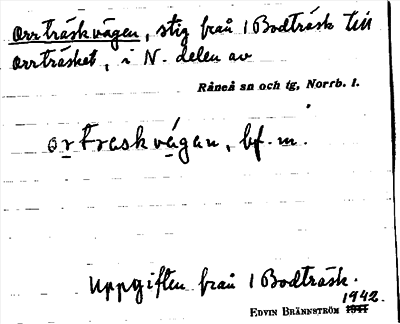 Orrträskvägen, stig från 1 Bodträsk till
Orrträsket, i N. delen av
Råneå sn och tg, Norrb. l.
ortraskvágan, bf. m.
Uppgiften från 1 Bodträsk.
1942.
EDVIN BRÄNNSTRÖM 1941